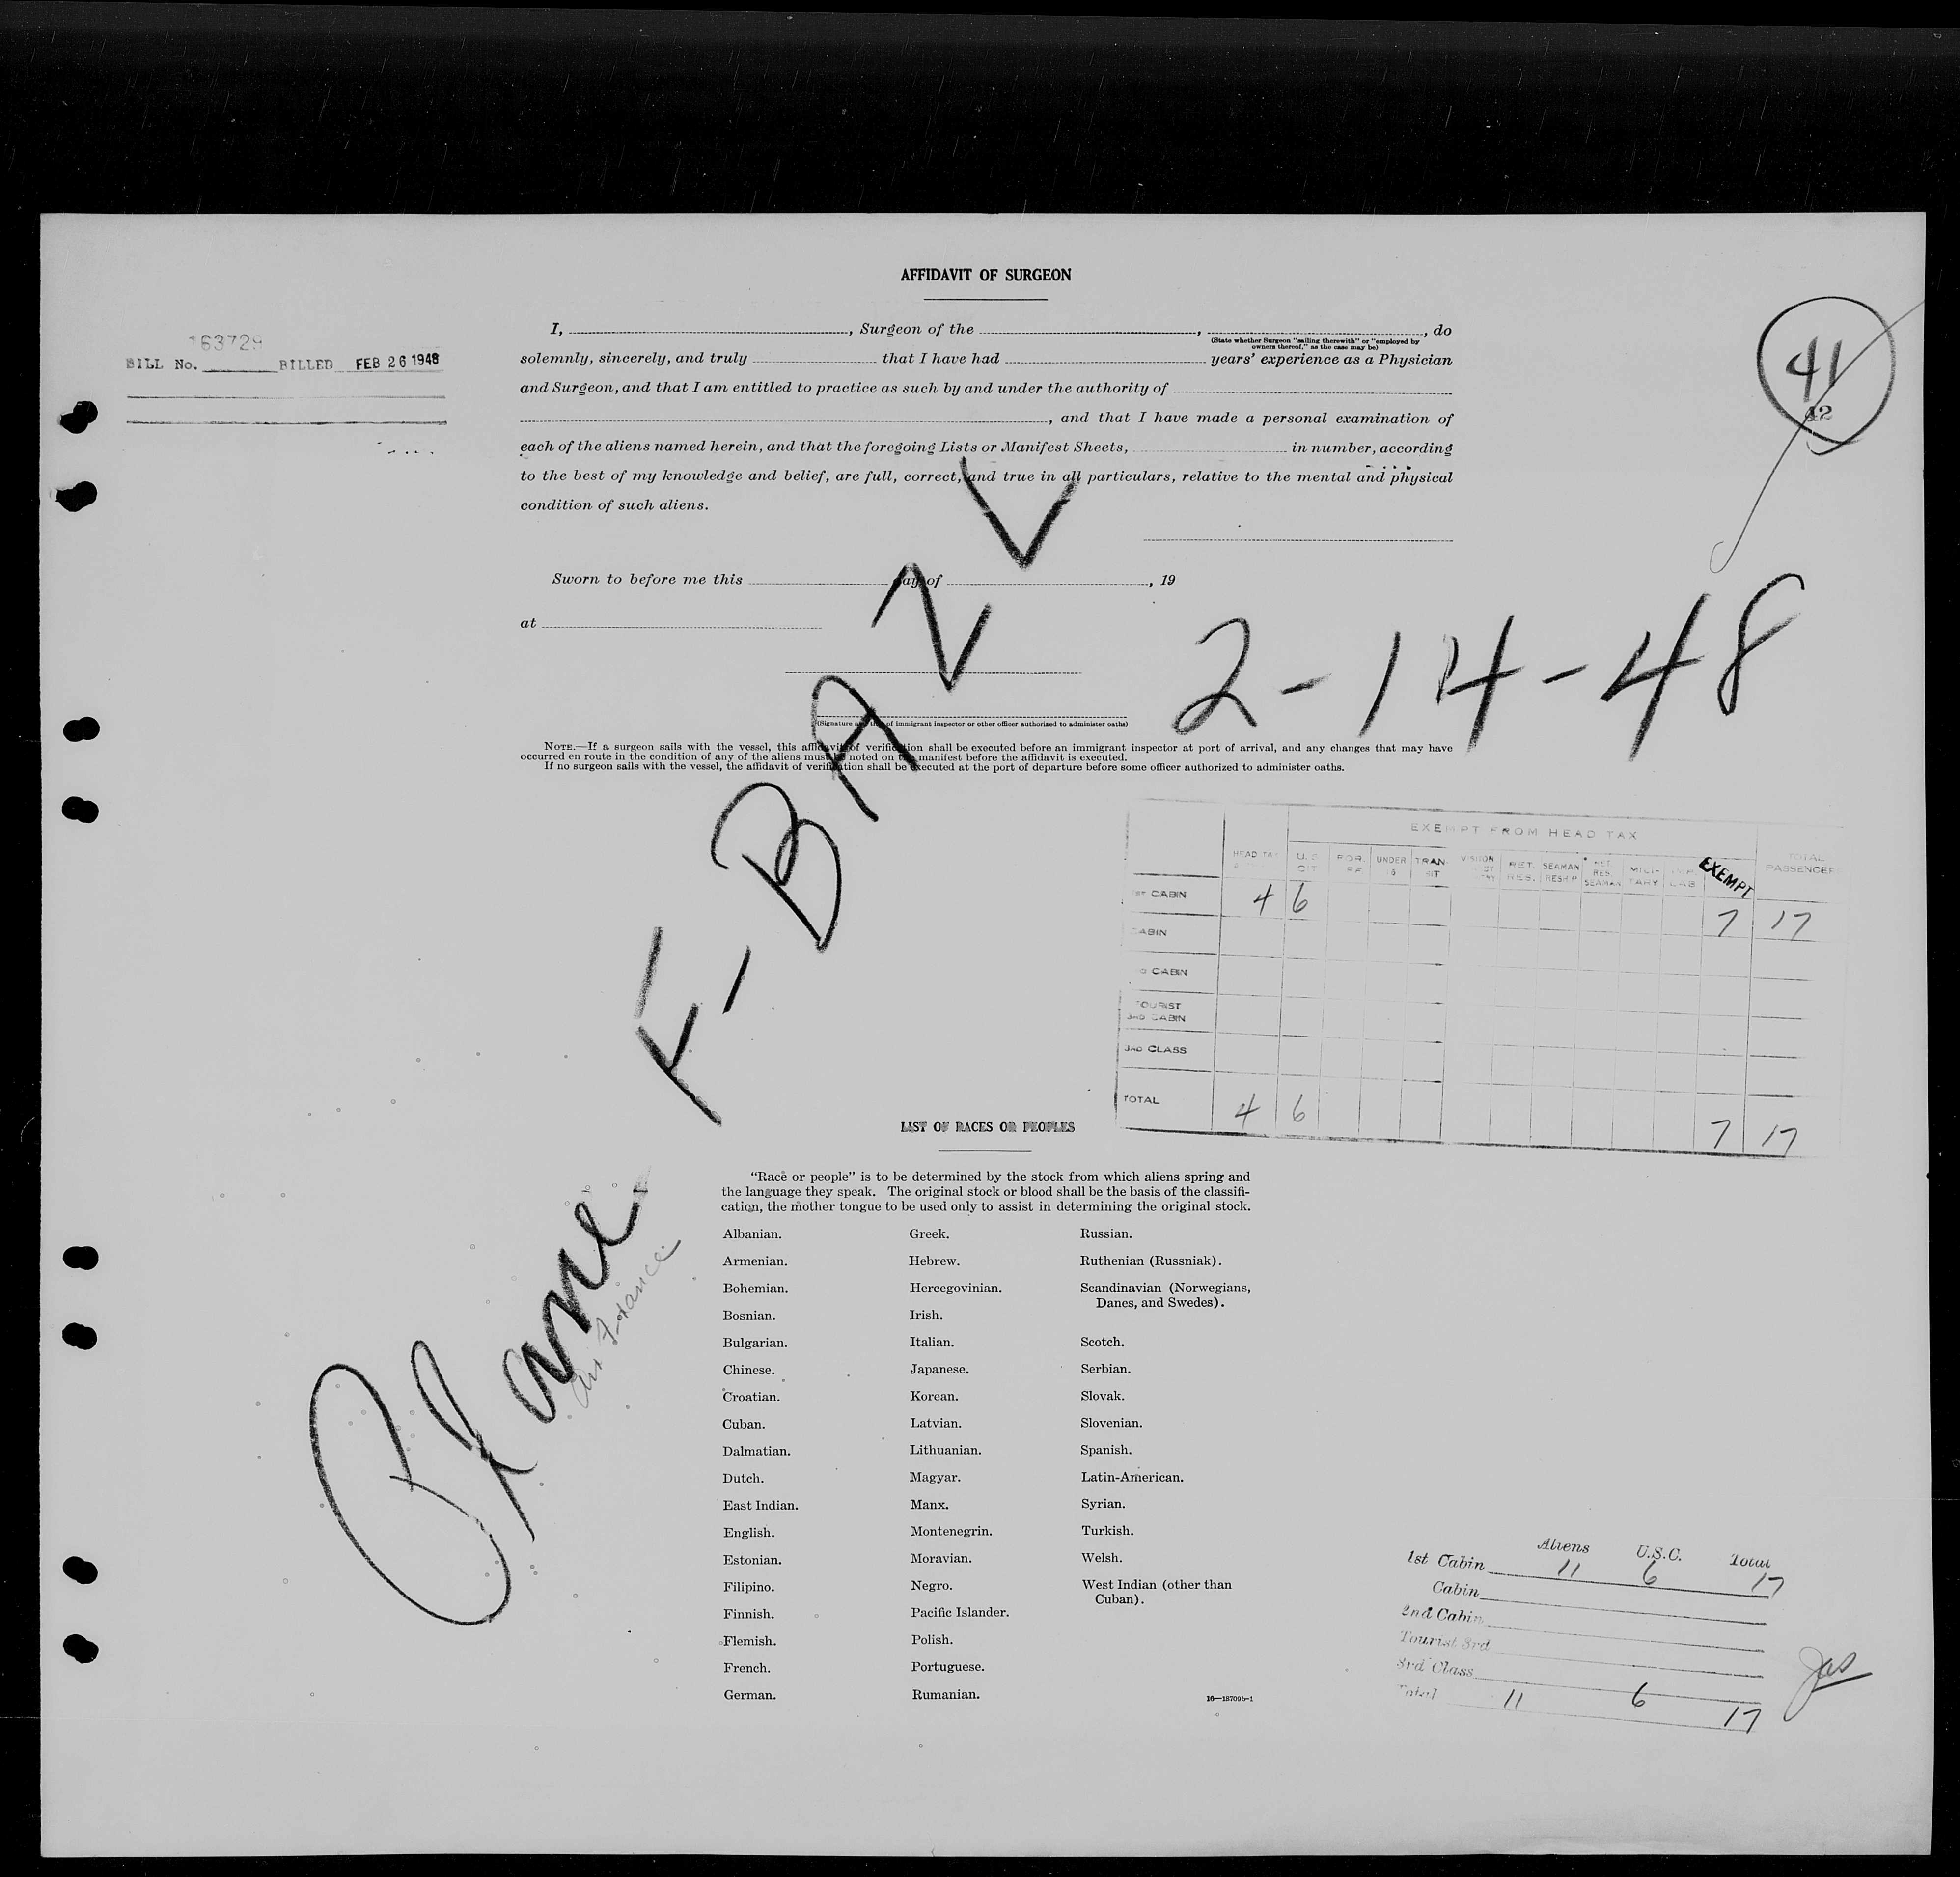 AFFIDAVIT OF SURGEON
163729
BILL No. BILLED FEB 26 1948
41
42
I, , Surgeon of the , , do
(State whether Surgeon "sailing therewith" or "employed by
owners thereof," as the case may be)
solemnly, sincerely, and truly that I have had years' experience as a Physician
and Surgeon, and that I am entitled to practice as such by and under the authority of
, and that I have made a personal examination of
each of the aliens named herein, and that the foregoing Lists or Manifest Sheets, in number, according
to the best of my knowledge and belief, are full, correct, and true in all particulars, relative to the mental and physical
condition of such aliens.
Sworn to before me this day of , 19
at
2-14-48
(Signature and title of immigrant inspector or other officer authorized to administer oaths)
NOTE.—If a surgeon sails with the vessel, this affidavit of verification shall be executed before an immigrant inspector at port of arrival, and any changes that may have
occurred en route in the condition of any of the aliens must be noted on the manifest before the affidavit is executed.
If no surgeon sails with the vessel, the affidavit of verification shall be executed at the port of departure before some officer authorized to administer oaths.
Plane F-BAZV
Air France
EXEMPT FROM HEAD TAX
HEAD TAX U.S. CIT FOR. UNDER 16 TRAN-SIT VISITOR RET. RES. SEAMAN RESHIP RET. RES. SEAMAN MILI-TARY EXEMPT TOTAL PASSENGER
1ST CABIN 4 6 7 17
CABIN
CABIN
TOURIST
3RD CABIN
3RD CLASS
TOTAL 4 6 7 17
LIST OF RACES OR PEOPLES
"Race or people" is to be determined by the stock from which aliens spring and
the language they speak. The original stock or blood shall be the basis of the classifi-
cation, the mother tongue to be used only to assist in determining the original stock.
Albanian.
Armenian.
Bohemian.
Bosnian.
Bulgarian.
Chinese.
Croatian.
Cuban.
Dalmatian.
Dutch.
East Indian.
English.
Estonian.
Filipino.
Finnish.
Flemish.
French.
German.
Greek.
Hebrew.
Hercegovinian.
Irish.
Italian.
Japanese.
Korean.
Latvian.
Lithuanian.
Magyar.
Manx.
Montenegrin.
Moravian.
Negro.
Pacific Islander.
Polish.
Portuguese.
Rumanian.
Russian.
Ruthenian (Russniak).
Scandinavian (Norwegians,
Danes, and Swedes).
Scotch.
Serbian.
Slovak.
Slovenian.
Spanish.
Latin-American.
Syrian.
Turkish.
Welsh.
West Indian (other than
Cuban).
16—18709b-1
Aliens U.S.C. Total
1st Cabin 11 6 17
Cabin
2nd Cabin
Tourist 3rd
3rd Class
Total 11 6 17